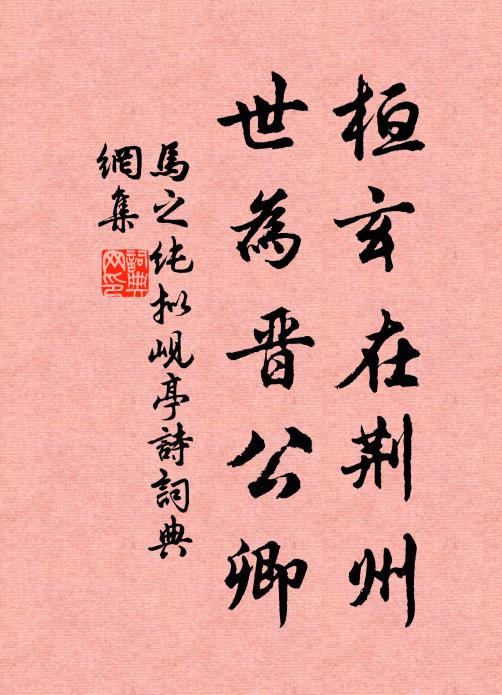 桓玄在荆州
世為晋公卿
馬之纯拟峴亭詩詞典
網集
詞典
网印